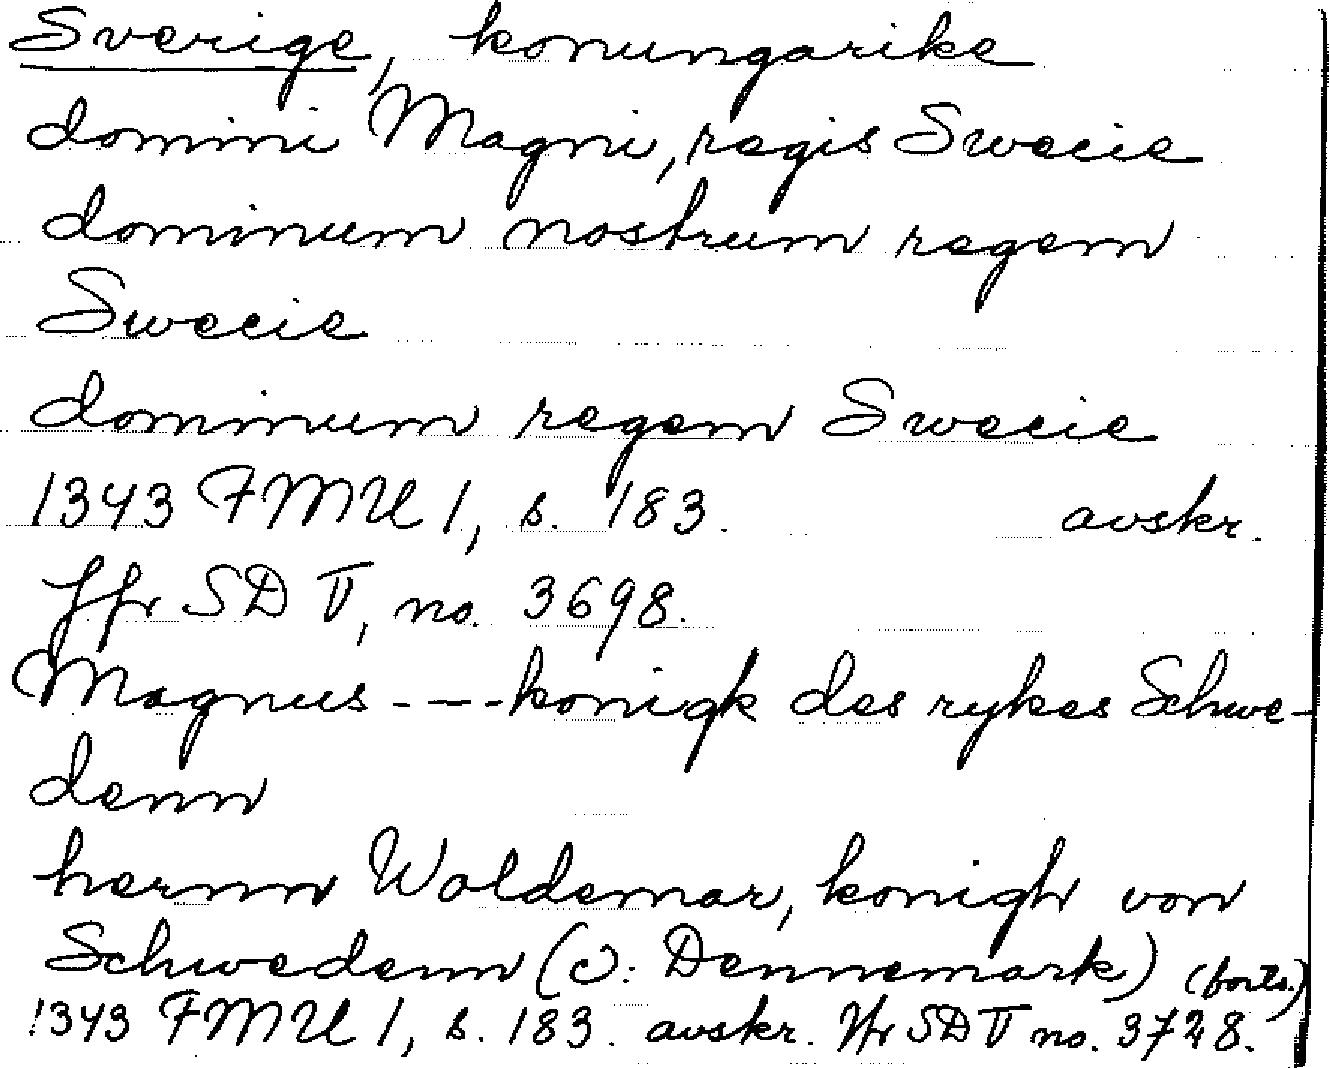 Sverige, konungarike
domini Magni, regis Swecie
dominum nostrum regem
Swecie
dominum regem Swecie
1343 FMU 1, s. 183. avskr.
Jfr SD V, no. 3698.
Magnus ---- konigk des rykes Schwe-
denn
hernn Woldemar, konigh von
Schwedenn (ɔ: Dennemark) (forts.)
1343 FMU 1, s. 183. avskr. Jfr SD V no. 3728.